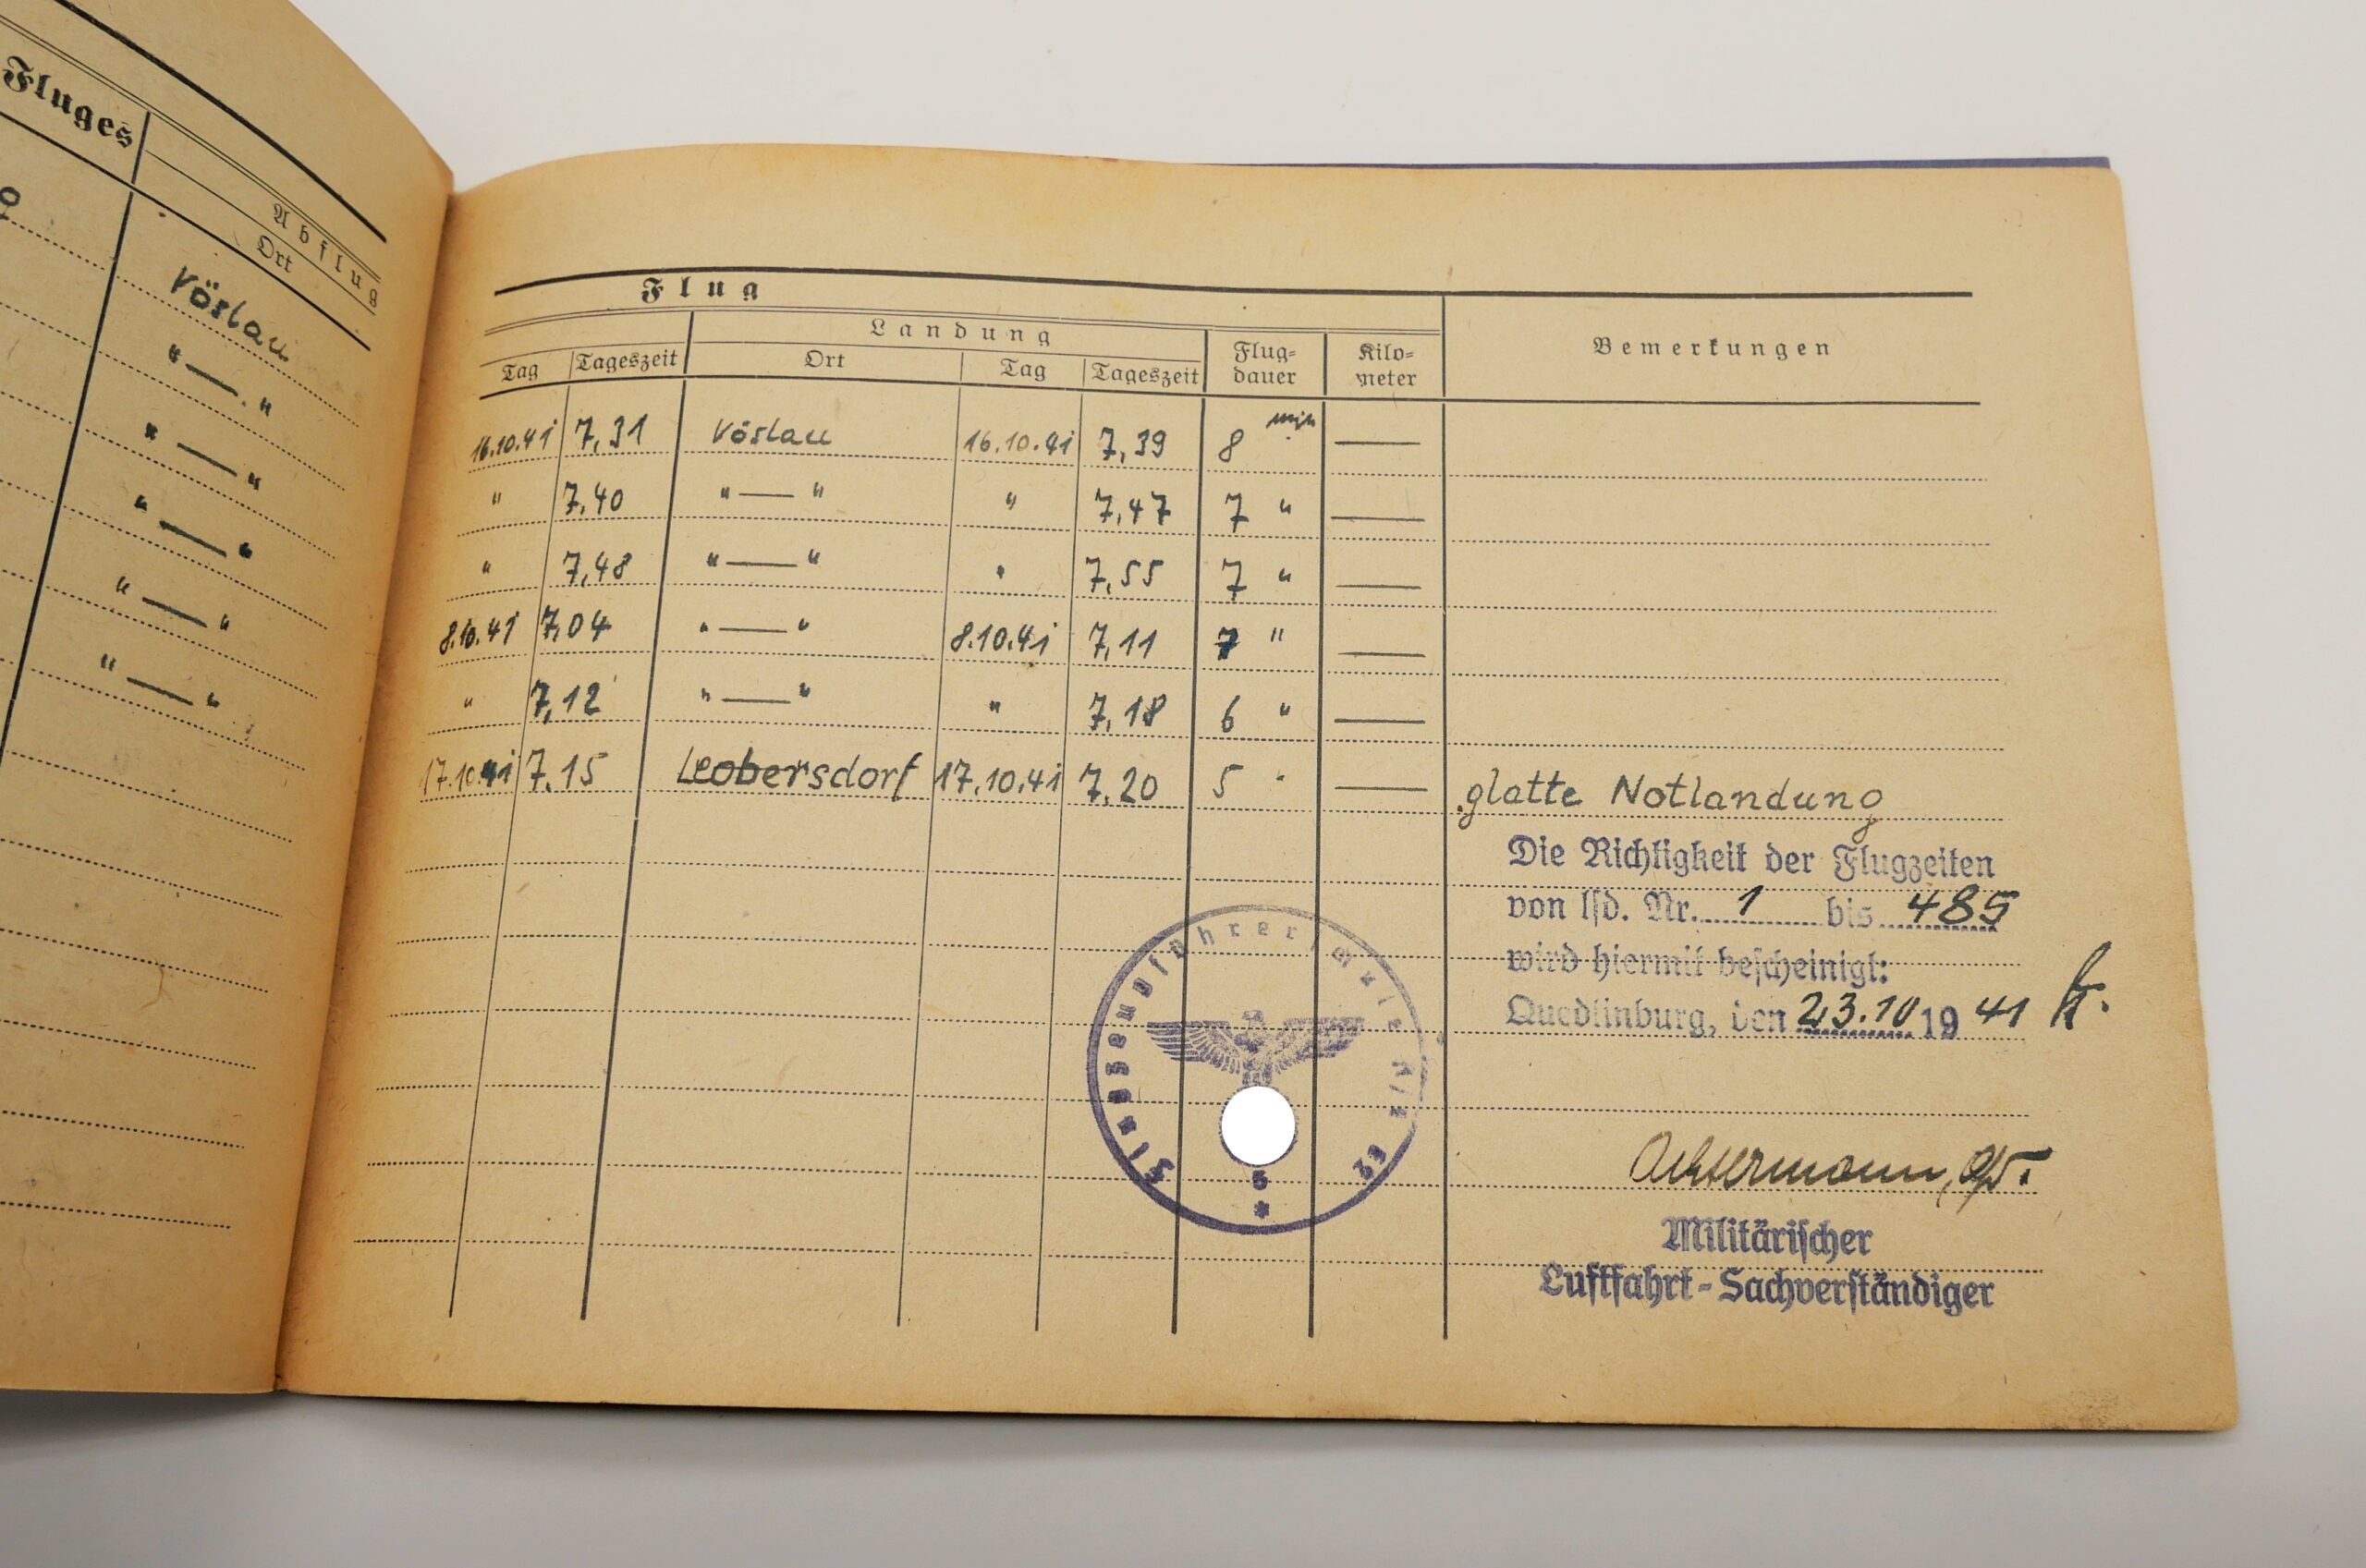 Fluges
Abflug
Ort
Vöslau
" — "
" — "
" — "
" — "
" — "
Flug
Landung
Tag Tageszeit Ort Tag Tageszeit Flug=dauer Kilo=meter Bemerkungen
16.10.41 7,31 Vöslau 16.10.41 7,39 8 min —
" 7,40 " — " " 7,47 7 " —
" 7,48 " — " " 7,55 7 " —
8.10.41 7,04 " — " 8.10.41 7,11 7 " —
" 7,12 " — " " 7,18 6 " —
17.10.41 7,15 Leobersdorf 17.10.41 7,20 5 " — glatte Notlandung
Die Richtigkeit der Flugzeiten
von lfd. Nr. 1 bis 485
wird hiermit bescheinigt:
Quedlinburg, den 23.10 19 41
Flugzeugführerschule A/B
5
Militärischer
Luftfahrt-Sachverständiger